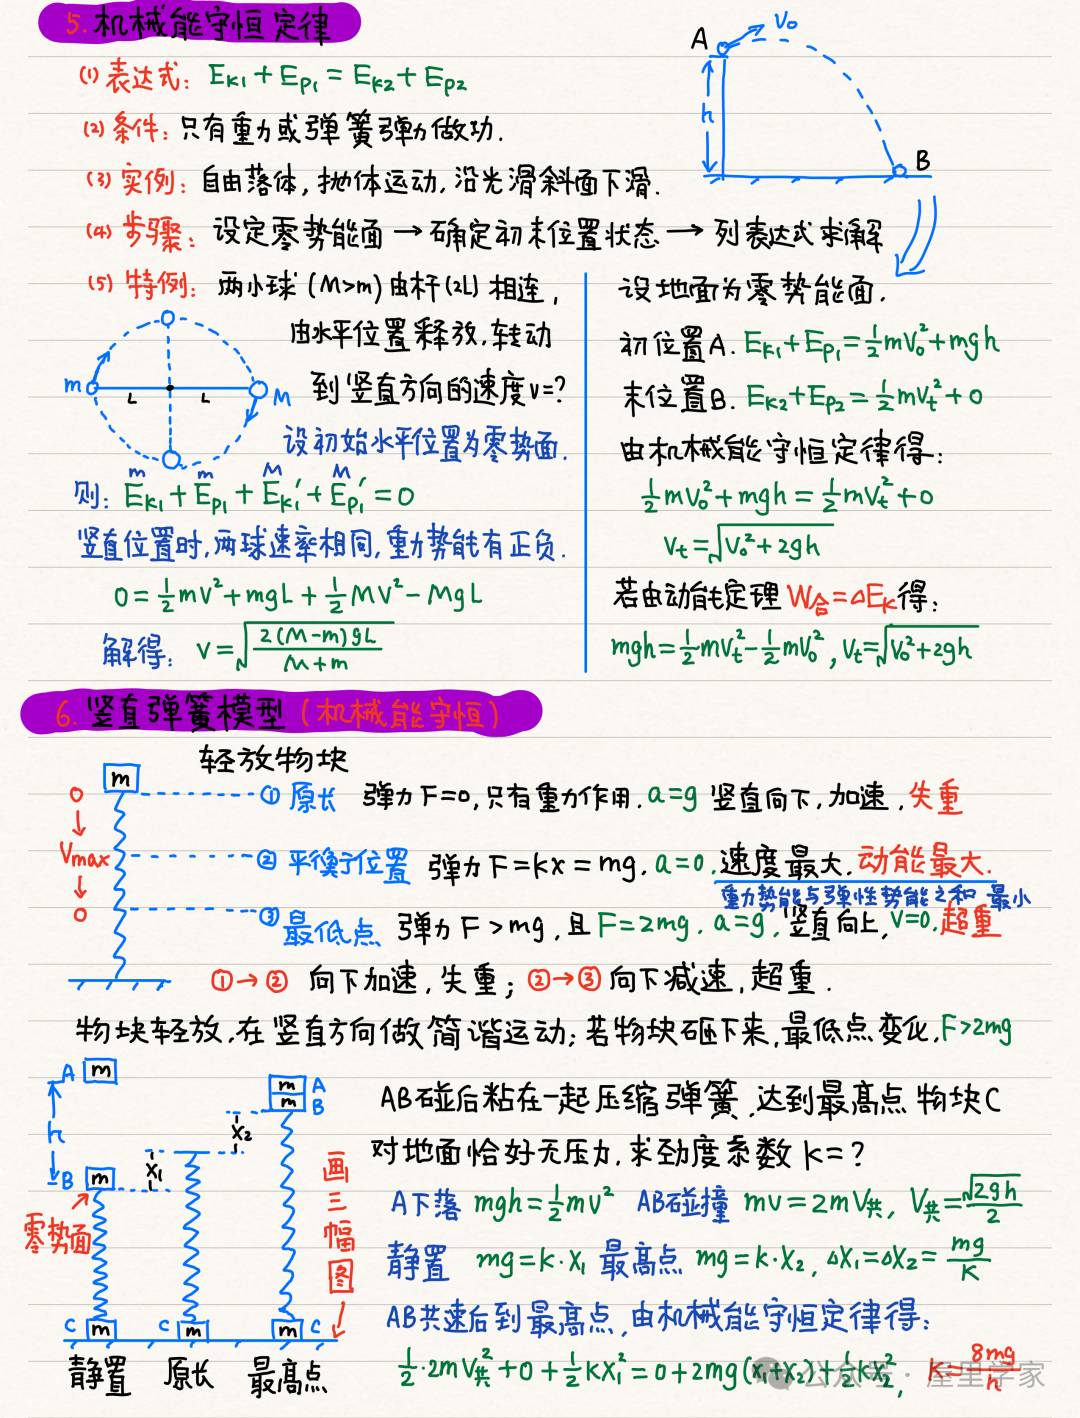 5. 机械能守恒定律
(1) 表达式: Ek₁+Ep₁=Ek₂+Ep₂
(2) 条件: 只有重力或弹簧弹力做功.
(3) 实例: 自由落体, 抛体运动, 沿光滑斜面下滑.
(4) 步骤: 设定零势能面→确定初末位置状态→列表达式求解
A
V₀
h
B
(5) 特例: 两小球 (M>m) 由杆(2L) 相连,
由水平位置释放, 转动
到竖直方向的速度v=?
m
L
L
M
设初始水平位置为零势面.
m m M M
则: Ek₁+Ep₁+Ek₁'+Ep₁'=0
竖直位置时, 两球速率相同, 重力势能有正负.
0=½mv²+mgL+½Mv²-MgL
解得: v=√(2(M-m)gL/(M+m))
设地面为零势能面.
初位置A. Ek₁+Ep₁=½mV₀²+mgh
末位置B. Ek₂+Ep₂=½mVt²+0
由机械能守恒定律得:
½mV₀²+mgh=½mVt²+0
Vt=√(V₀²+2gh)
若由动能定理 W合=△Ek得:
mgh=½mVt²-½mV₀², Vt=√(V₀²+2gh)
6. 竖直弹簧模型 (机械能守恒)
轻放物块
m
0
Vmax
0
① 原长 弹力F=0, 只有重力作用. a=g 竖直向下, 加速, 失重
② 平衡位置 弹力F=kx=mg. a=0. 速度最大. 动能最大.
重力势能与弹性势能之和 最小
③ 最低点 弹力F>mg, 且F=2mg. a=g, 竖直向上, V=0. 超重
①→② 向下加速, 失重; ②→③ 向下减速, 超重.
物块轻放, 在竖直方向做简谐运动; 若物块砸下来, 最低点变化, F>2mg
A
m
h
B
m
零势面
C
m
静置
X₁
C
m
原长
X₂
m
A
m
B
m
C
最高点
画三幅图
AB碰后粘在一起压缩弹簧, 达到最高点物块C
对地面恰好无压力, 求劲度系数k=?
A下落 mgh=½mv² AB碰撞 mv=2mV共, V共=√(2gh)/2
静置 mg=k·X₁ 最高点 mg=k·X₂, △X₁=△X₂=mg/K
AB共速后到最高点, 由机械能守恒定律得:
½·2mV共²+0+½kX₁²=0+2mg(X₁+X₂)+½kX₂², K=8mg/h
公众号·屋里学家